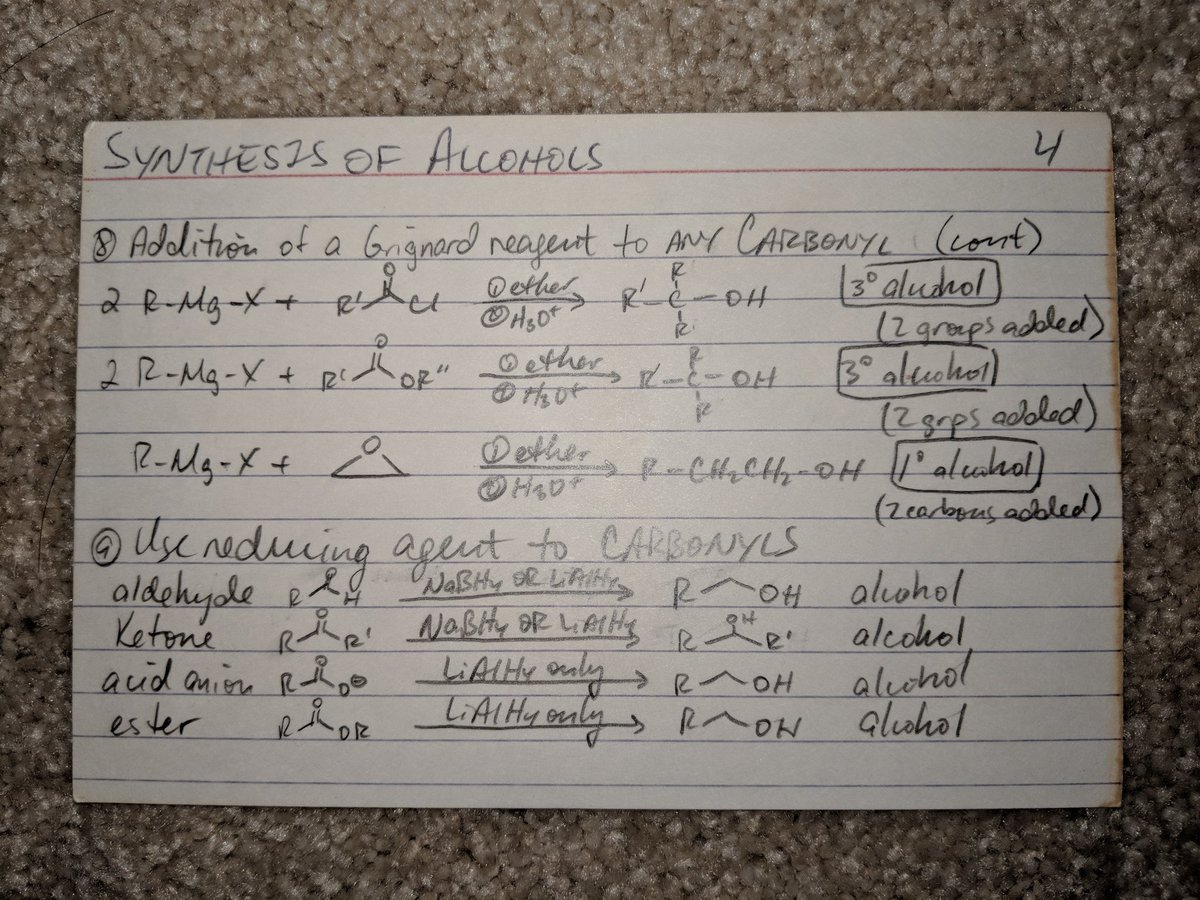 SYNTHESIS OF ALCOHOLS 4
⑧ Addition of a Grignard reagent to ANY CARBONYL (cont)
2 R-Mg-X + R' O Cl ① ether ② H3O+ R'-C-OH R R 3° alcohol
(2 groups added)
2 R-Mg-X + R' O OR" ① ether ② H3O+ R'-C-OH R R 3° alcohol
(2 grps added)
R-Mg-X + O ① ether ② H3O+ R-CH2CH2-OH 1° alcohol
(2 carbons added)
⑨ Use reducing agent to CARBONYLS
aldehyde R O H NaBH4 OR LiAlH4 R OH alcohol
Ketone R O R' NaBH4 OR LiAlH4 R OH R' alcohol
acid anion R O O⊖ LiAlH4 only R OH alcohol
ester R O OR LiAlH4 only R OH alcohol